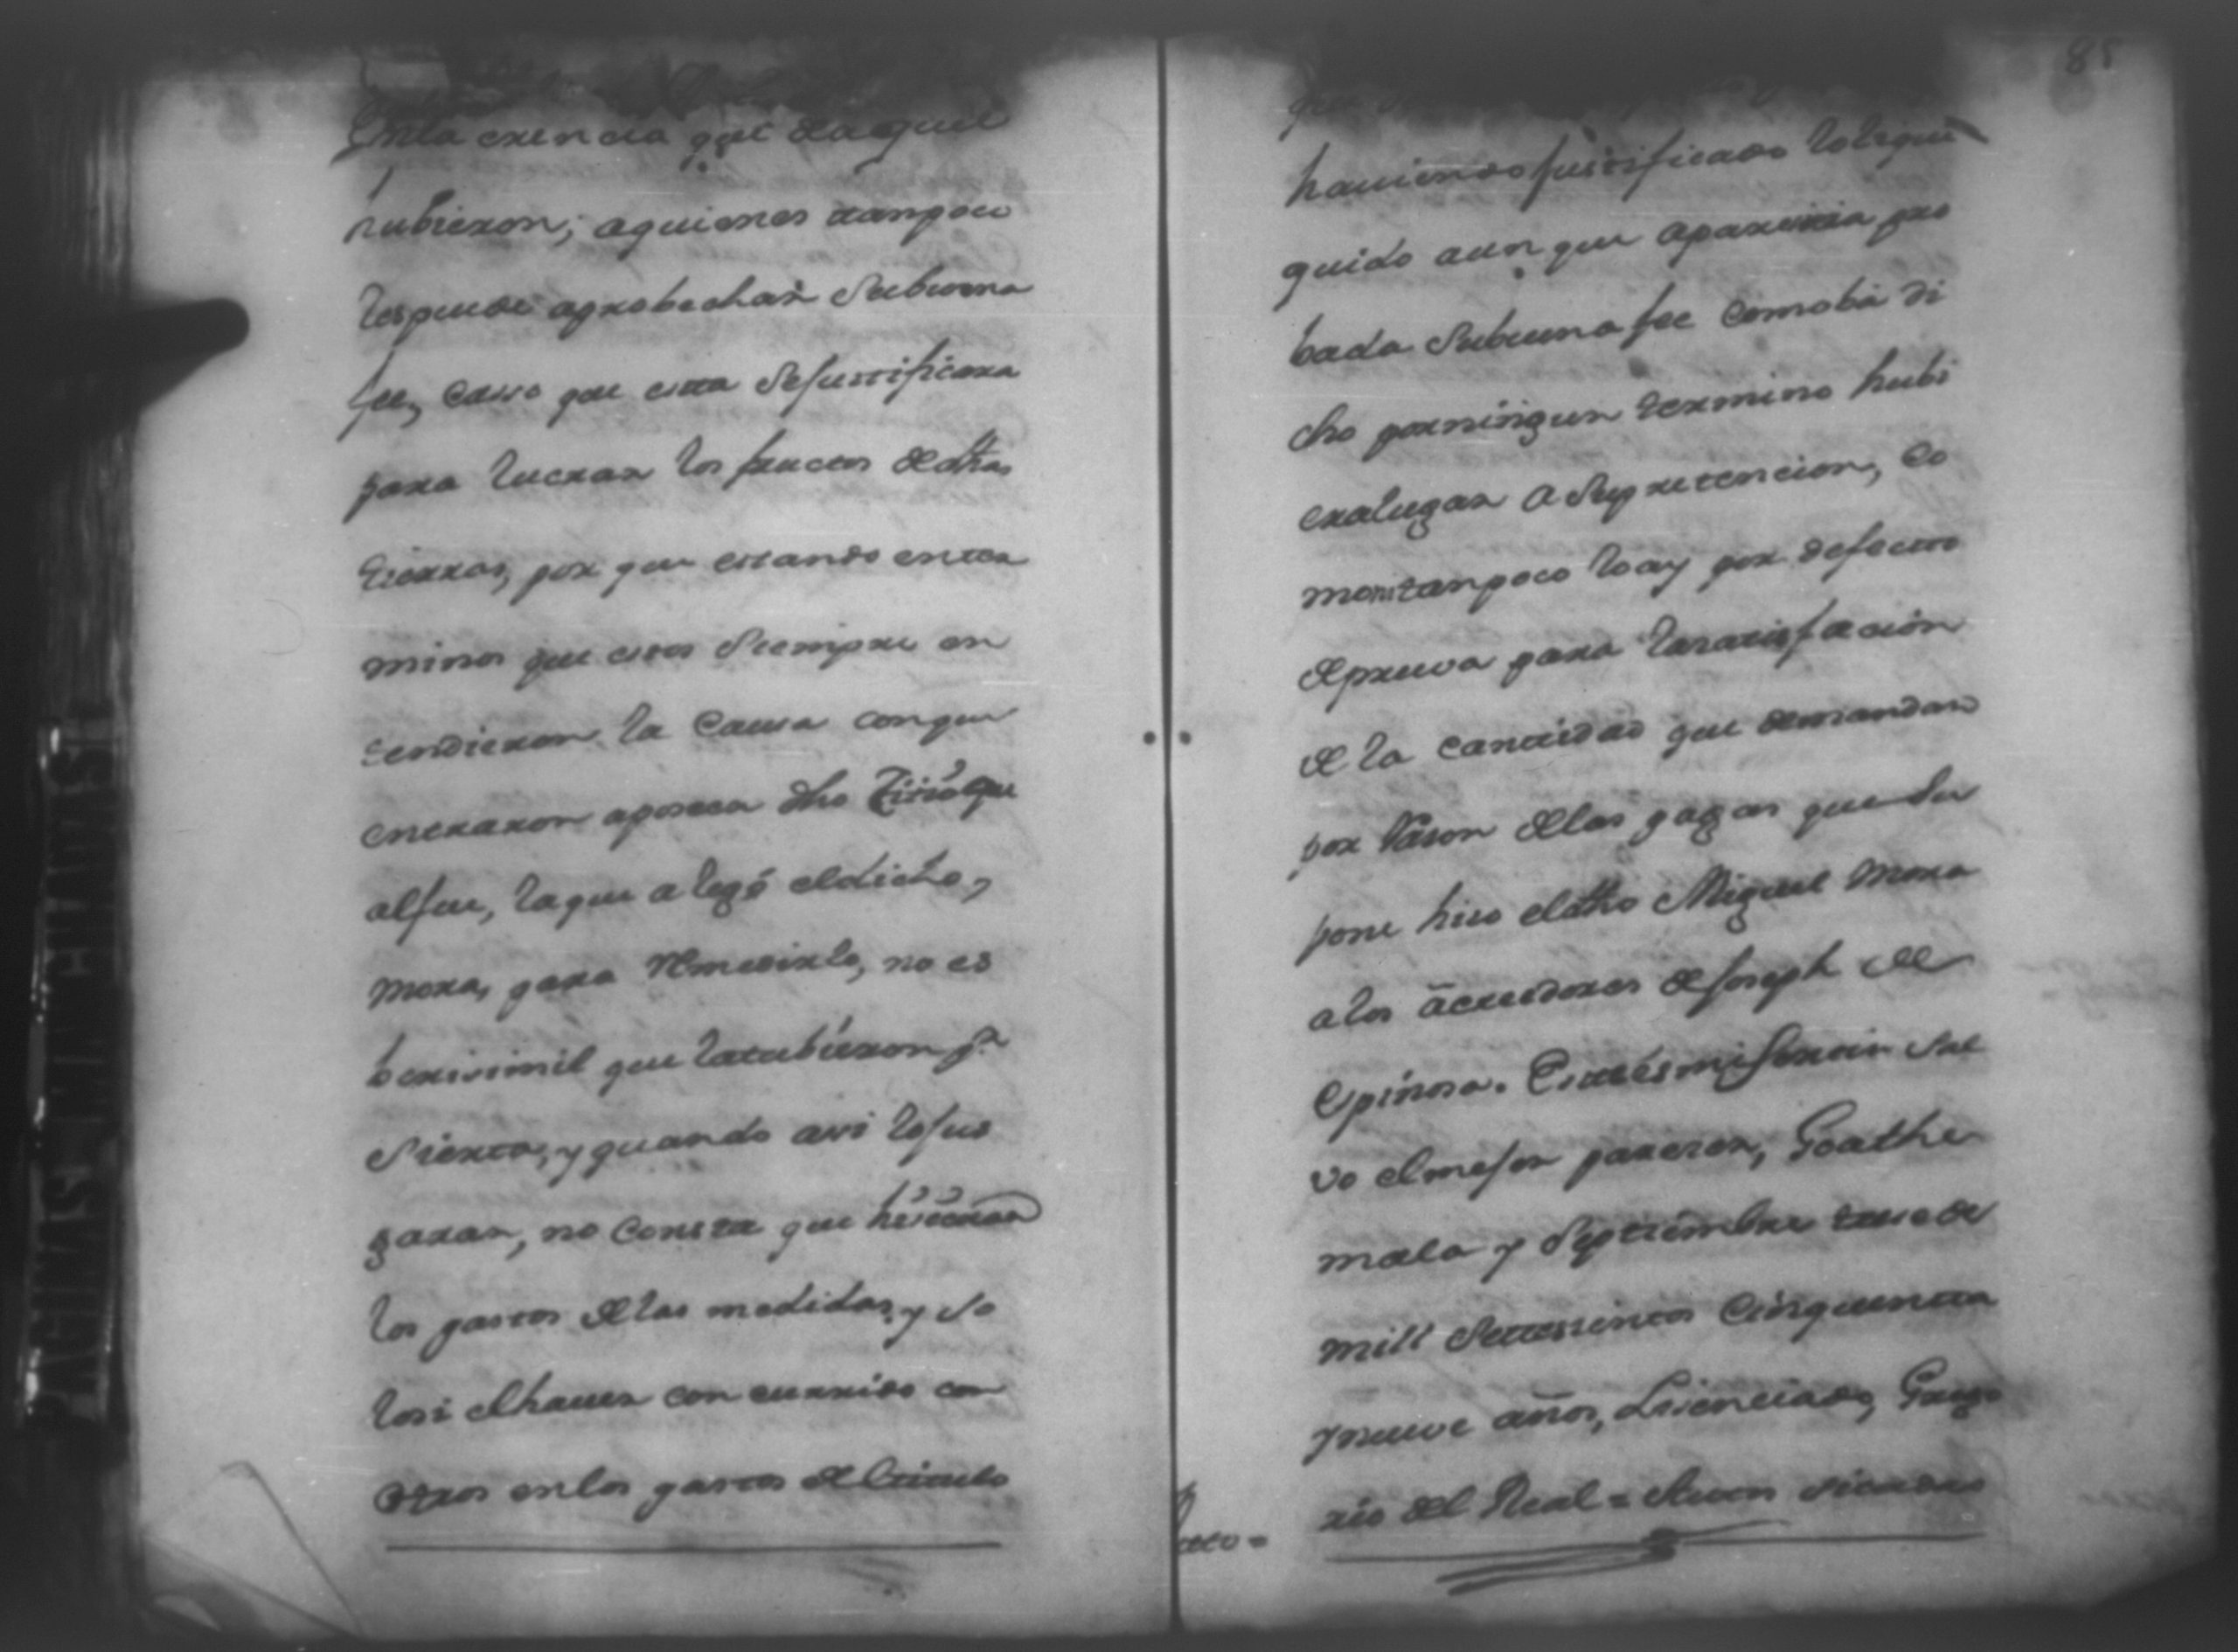 En la exencia que de aquel
hubieron; aquienes tanpoco
lespuede aprobechar Subuena
fee, Casso que esta Sejustificara
para lucrar los fructos de dhas
tierras, por que estando enter
minos que estos Siempre en
tendieron la Causa conque
entraron aposeer dho Titulo
alfue, laque alegó eldicho,
Mora, para Redmedirlo, no es
berisimil que latubieron pr
Sierta, y quando assi lojus
garan, no Consta que hisieran
los gastos delas medidas, y so
losi elhauer concurrido con
otros enlos gastos del titulo
85
hauiendo justificado lo lequi
quido aun que aparesia pro
bada Subuena fee Comoba di
cho porningun termino hubi
eralugar a Supretencion, Co
motanpoco loay por defecto
deprueva para lasatisfacion
de la Cantidad que demandan
por Rason delas pagas que su
pone hiso eldho Miguel Mora
alos acreedores deJoseph de
Espinosa. Estaes mi Sentir Sal
vo elmejor pareser, Goathe
mala y Septiembre trese de
mill Settesientos Cinquentta
ynueve años, Lisenciado, Grego
rio del Real = Auen viendose
Auto =